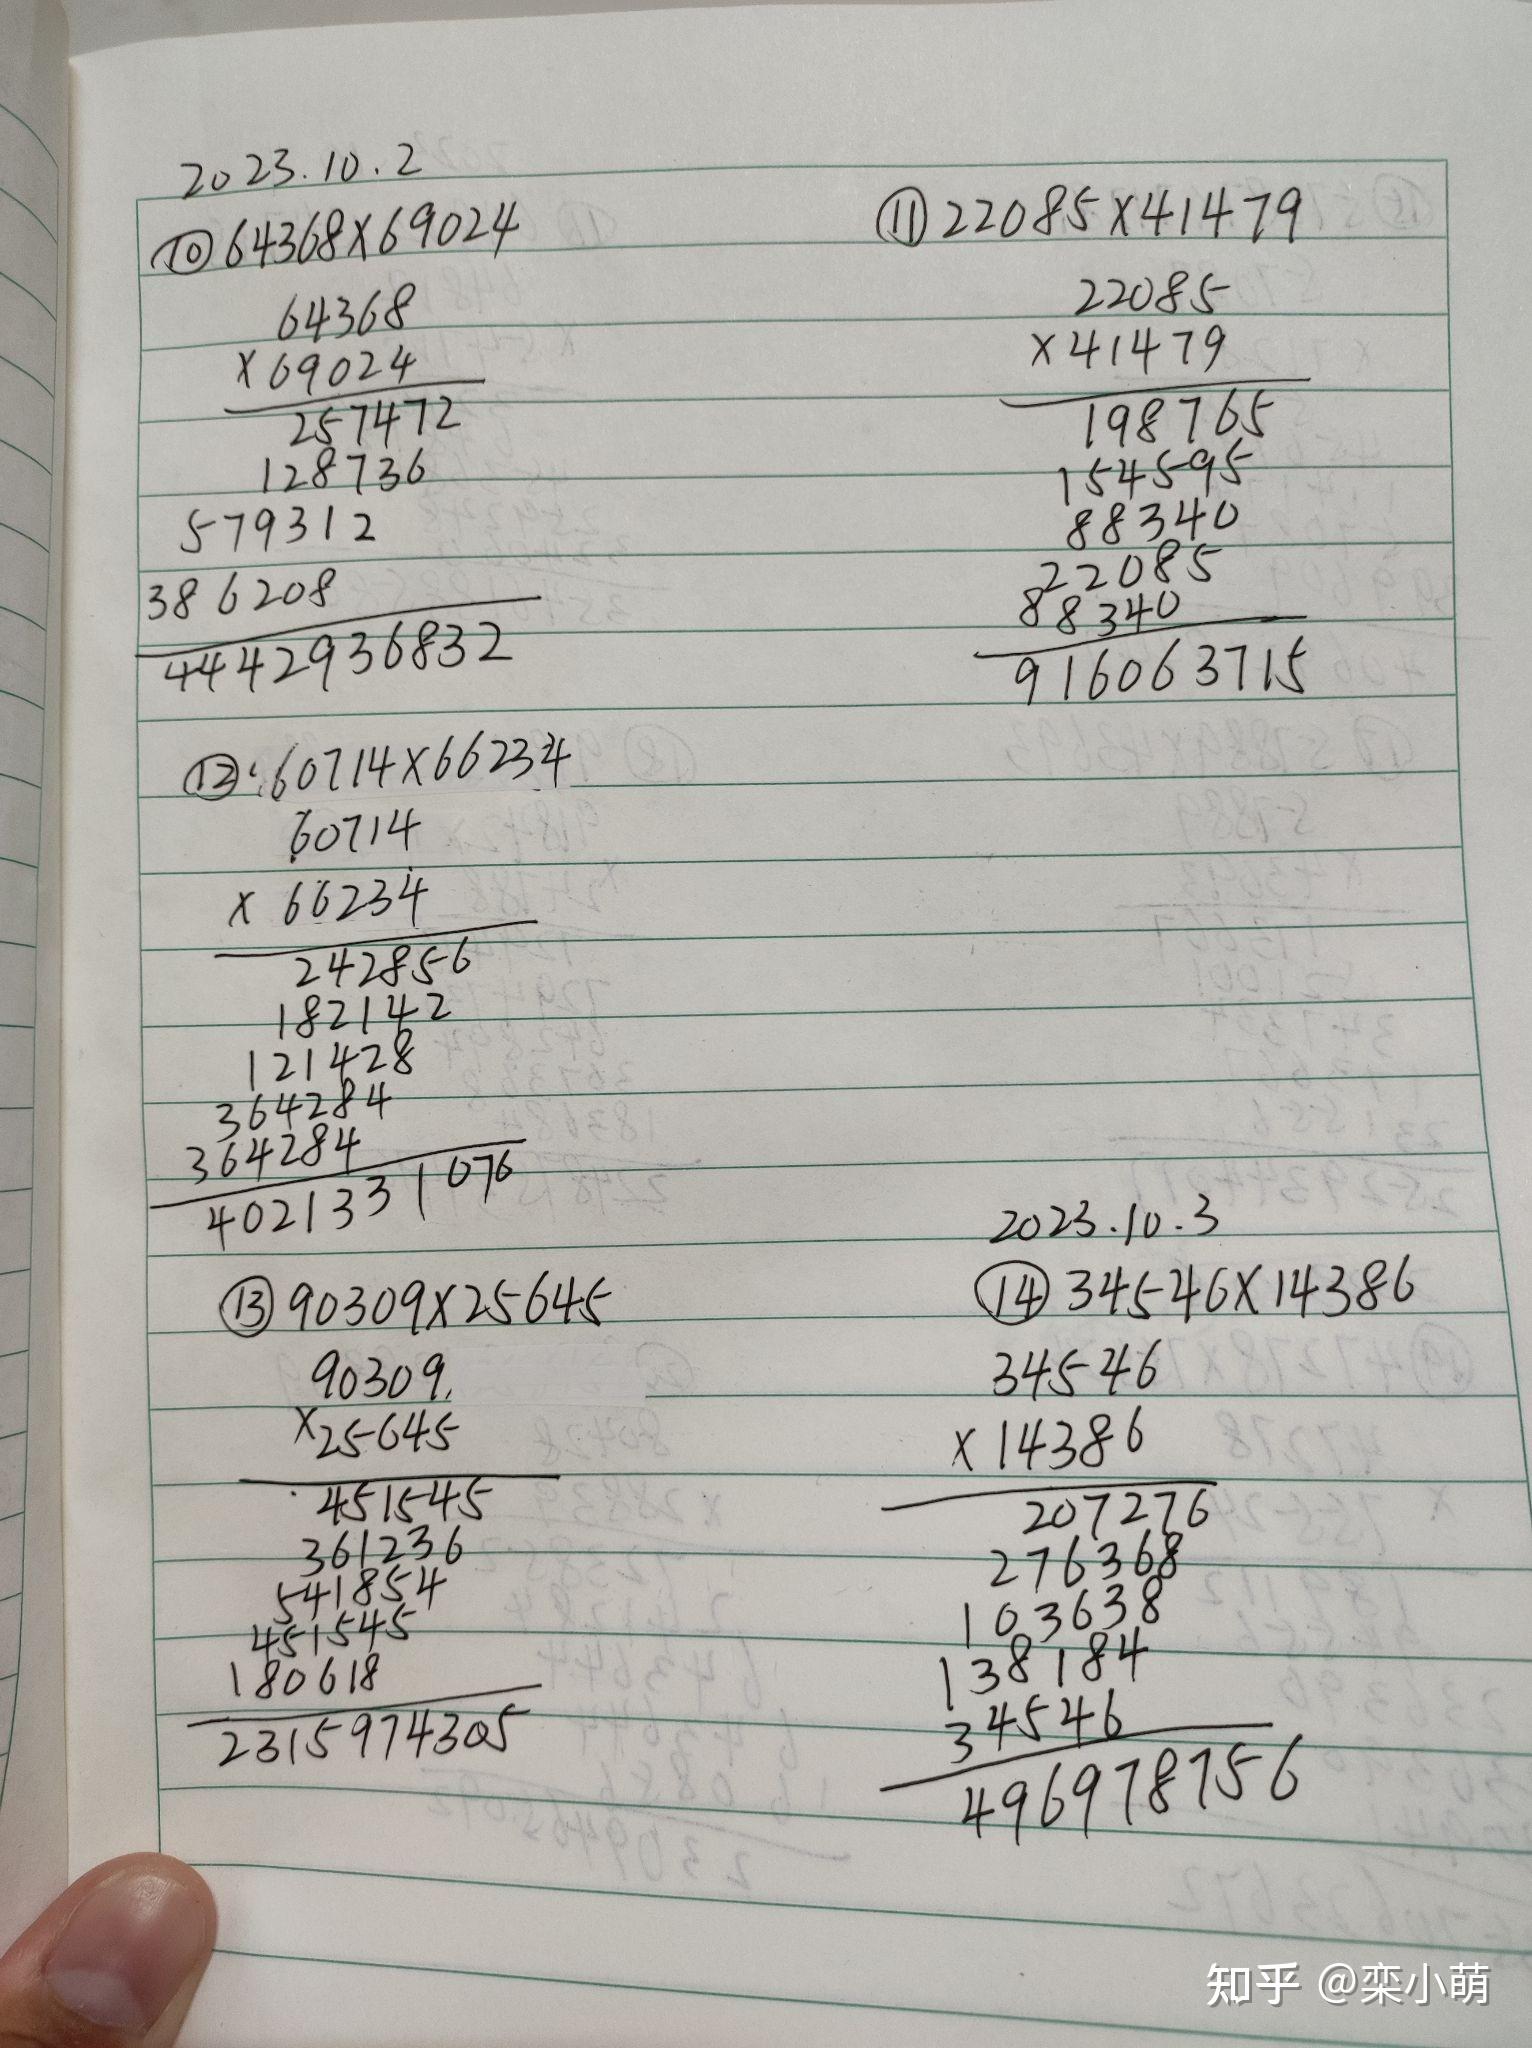 2023.10.2
⑩64368×69024
64368
×69024
257472
128736
579312
386208
4442936832
⑪22085×41479
22085
×41479
198765
154595
88340
22085
88340
916063715
⑫60714×66234
60714
× 66234
242856
182142
121428
364284
364284
4021331076
⑬90309×25645
90309
×25645
451545
361236
541854
451545
180618
2315974305
2023.10.3
⑭34546×14386
34546
×14386
207276
276368
103638
138184
34546
496978756
知乎 @栾小萌